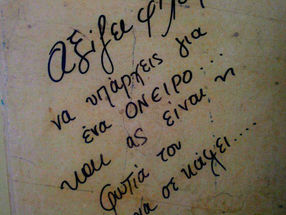 Αξίζει φίλε
να υπάρχεις για
ένα ΟΝΕΙΡΟ...
και ας είναι η
φωτιά του
να σε κάψει....